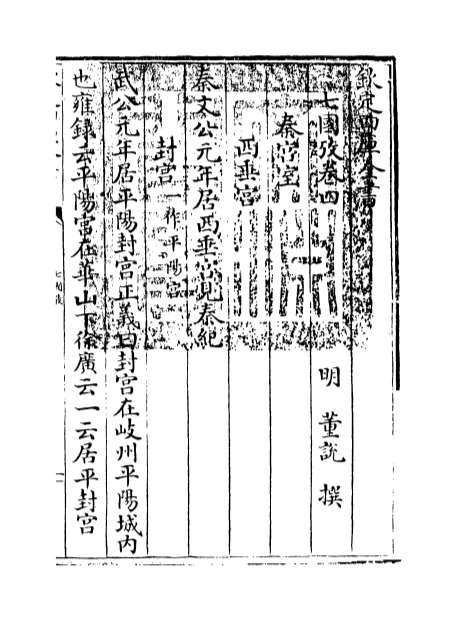 欽定四庫全書
七國攷卷四
明 董說 撰
秦宮室
西垂宮
秦文公元年居西垂宮見秦紀
封宮一作平陽宮
武公元年居平陽封宮正義曰封宮在岐州平陽城内
也雍録云平陽宮在華山下徐廣云一云居平封宮
七國攷